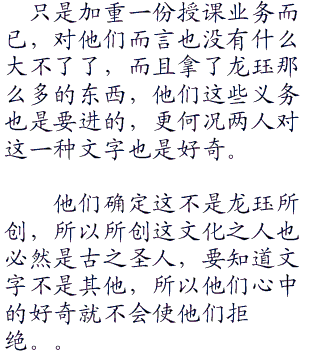 只是加重一份授课业务而
已，对他们而言也没有什么
大不了了，而且拿了龙珏那
么多的东西，他们这些义务
也是要进的，更何况两人对
这一种文字也是好奇。
他们确定这不是龙珏所
创，所以所创这文化之人也
必然是古之圣人，要知道文
字不是其他，所以他们心中
的好奇就不会使他们拒
绝。。